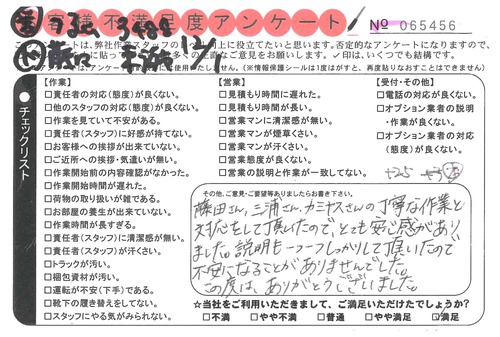 お客様不満足度アンケート
№ 065456
このアンケートは、弊社作業スタッフの
向上に役立てたいと思います。否定的なアンケートになりますので、
✓印は、いくつでも結構です。
(※情報保護シールは1度はがすと、再度貼りなおすことはできません)
チェックリスト
【作業】
□責任者の対応(態度)が良くない。
□他のスタッフの対応(態度)が良くない。
□作業を見ていて不安がある。
□責任者(スタッフ)に好感が持てない。
□お客様への挨拶が出来ていない。
□ご近所への挨拶・気遣いが無い。
□作業開始前の内容確認がなかった。
□作業開始時間が遅れた。
□荷物の取り扱いが雑である。
□お部屋の養生が出来ていない。
□作業時間が長すぎる。
□責任者(スタッフ)に清潔感が無い。
□責任者(スタッフ)が汗くさい。
□トラックが汚い。
□梱包資材が汚い。
□運転が不安(下手)である。
□靴下の履き替えをしてない。
□スタッフにやる気がみられない。
【営業】
□見積もり時間に遅れた。
□見積もり時間が長い。
□営業マンに清潔感が無い。
□営業マンが煙草くさい。
□営業マンが汗くさい。
□営業態度が良くない。
□営業の説明と作業が一致してない。
【受付・その他】
□電話の対応が良くない。
□オプション業者の説明
・作業が良くない。
□オプション業者の対応
(態度)が良くない。
その他、ご意見・ご要望等ありましたらお書き下さい。
藤田さん、三浦さん、カミヤスさんの丁寧な作業と
対応をして頂いたので、とても安心感があり
ました。説明も一つ一つしっかりして頂いたので
不安になることがありませんでした。
この度は、ありがとうございました。
☆当社をご利用いただきまして、ご満足いただけたでしょうか?
□不満 □やや不満 □普通 □やや満足 ☑満足